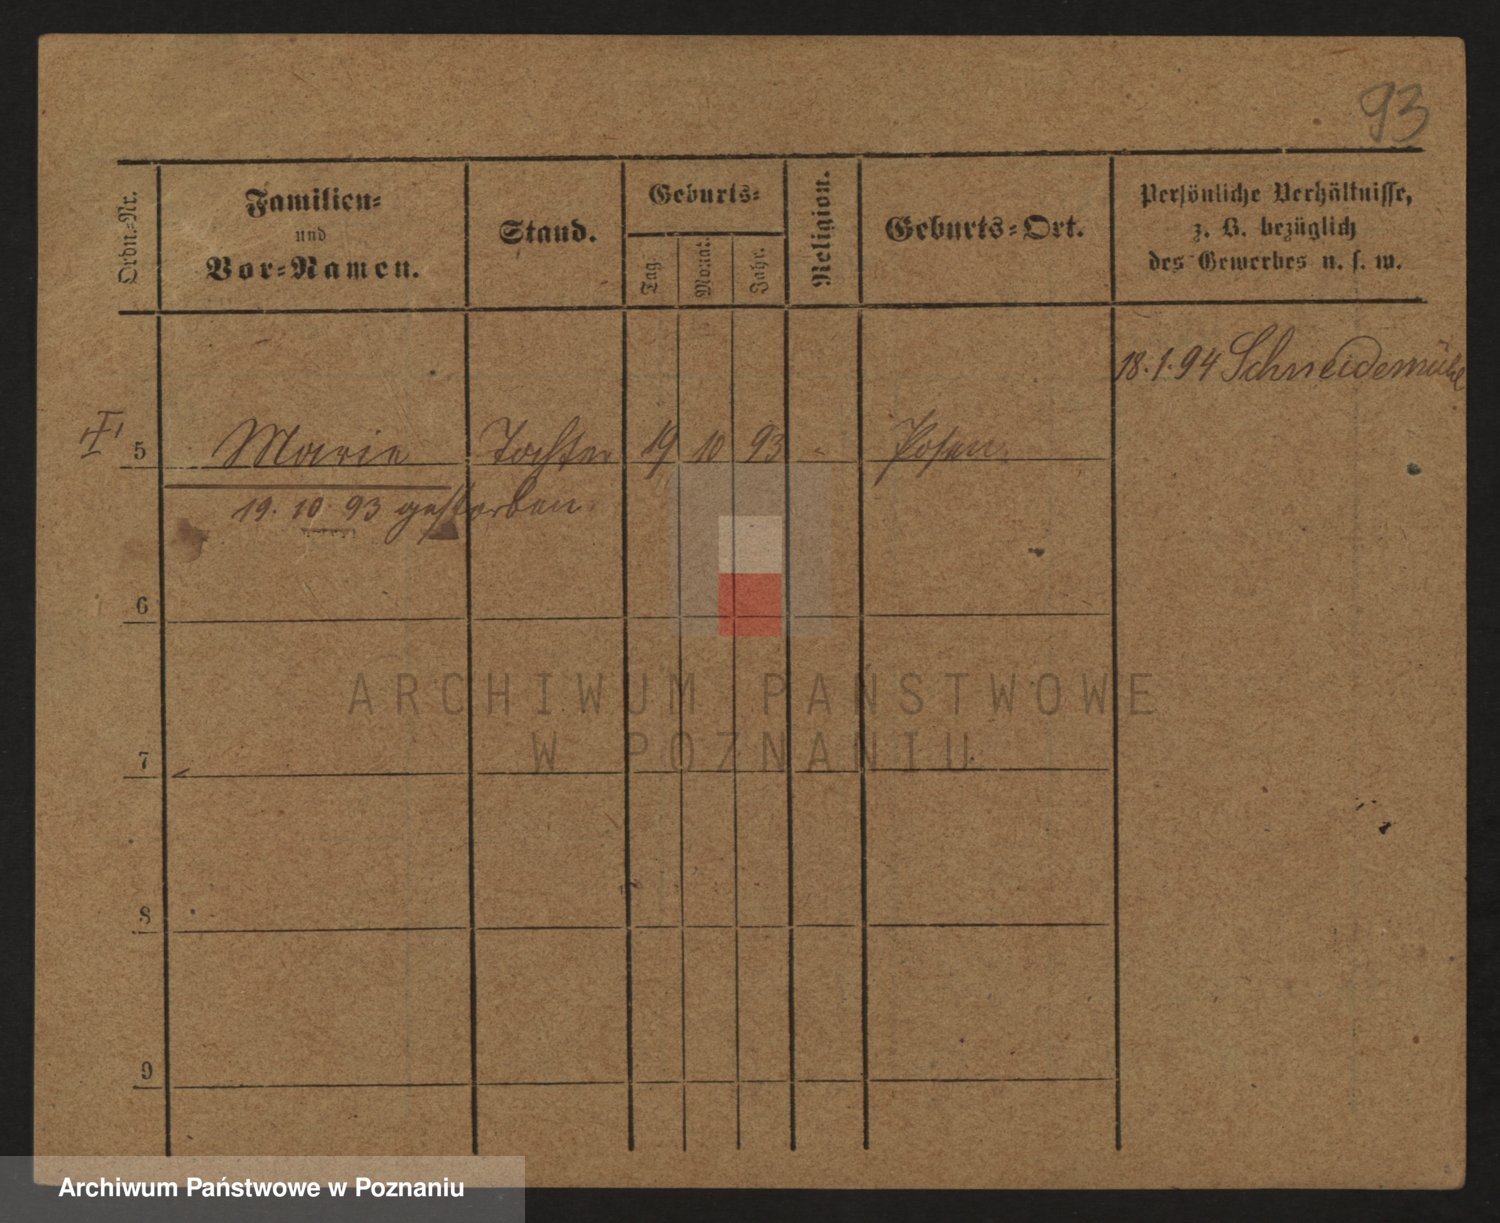 93
Ordn.-Nr.
Familien-
und
Vor-Namen.
Stand.
Geburts-
Tag.
Monat.
Jahr.
Religion.
Geburts-Ort.
Persönliche Verhältnisse,
z. B. bezüglich
des Gewerbes u. s. w.
18.1.94 Schneidemühl
I 5 Marie Tochter 19 10 93 - Posen
19. 10. 93 gestorben.
6
7
8
9
ARCHIWUM PAŃSTWOWE
W POZNANIU
Archiwum Państwowe w Poznaniu